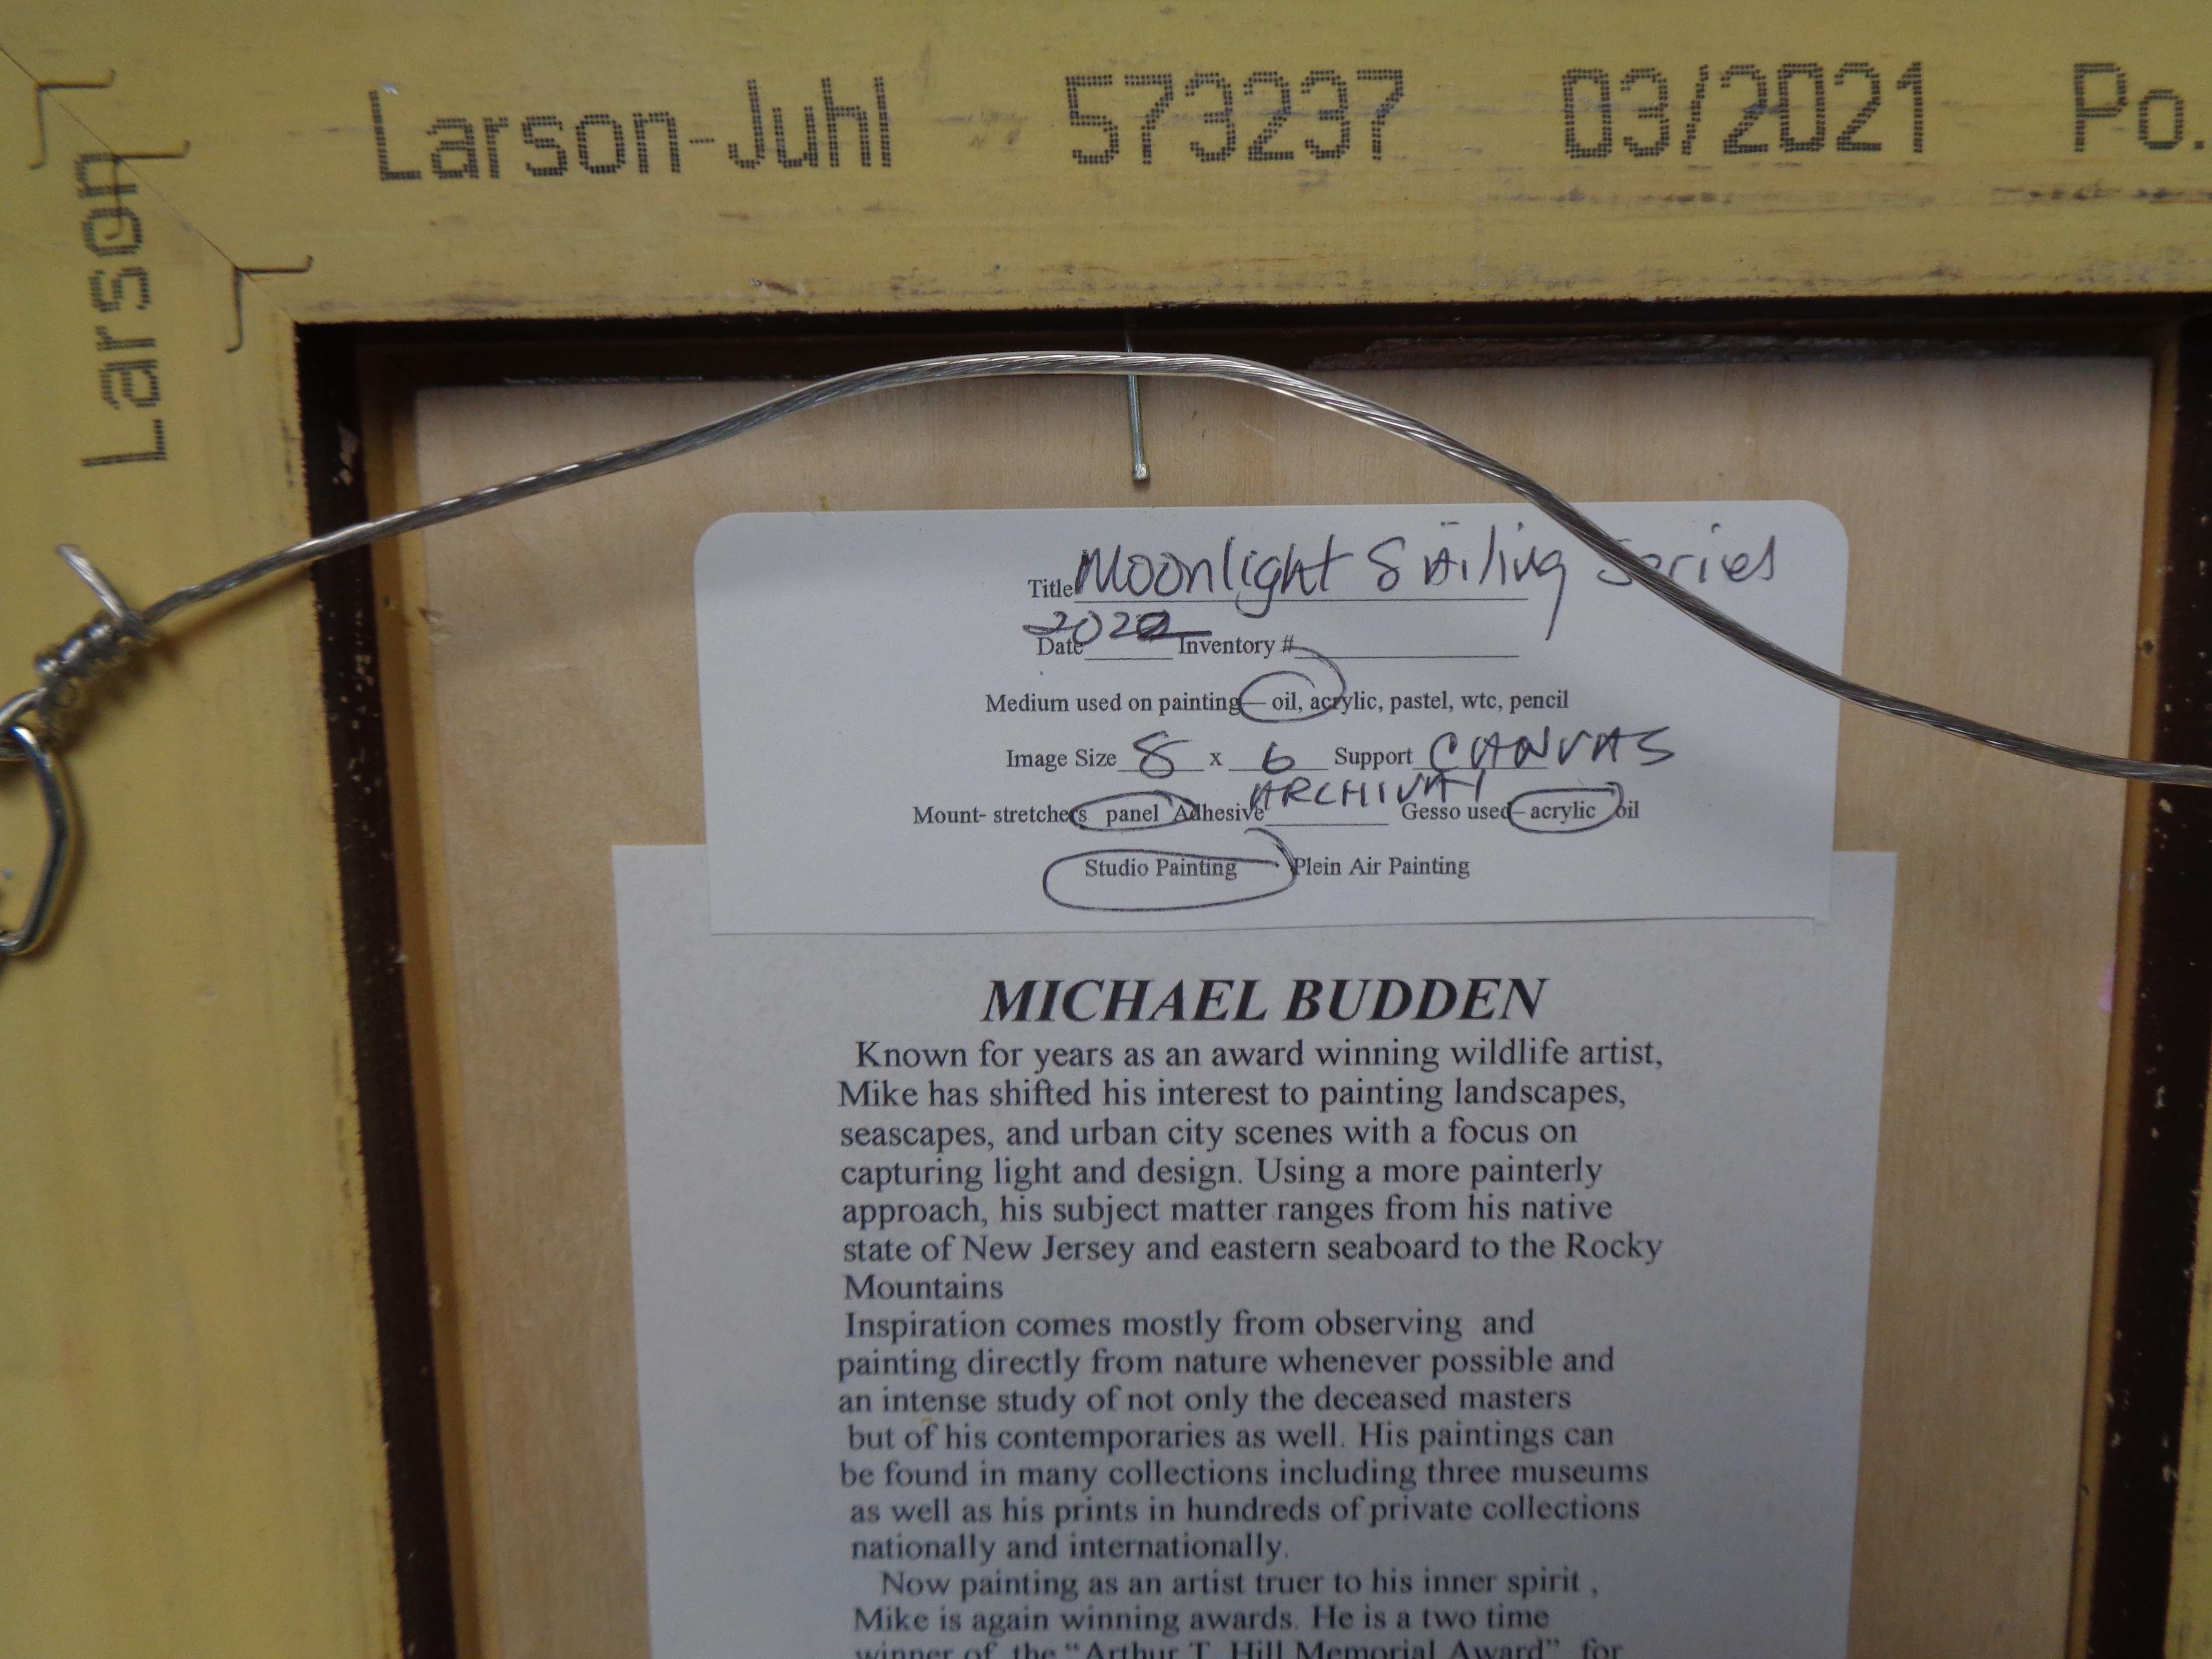 Larson-Juhl 573237 03/2021 Po.
Larson
Title Moonlight Sailing Series
Date 2022 Inventory #
Medium used on painting— oil, acrylic, pastel, wtc, pencil
Image Size 8 x 6 Support CANVAS
Mount- stretchers panel Adhesive ARCHIVAL Gesso used– acrylic oil
Studio Painting Plein Air Painting
MICHAEL BUDDEN
Known for years as an award winning wildlife artist,
Mike has shifted his interest to painting landscapes,
seascapes, and urban city scenes with a focus on
capturing light and design. Using a more painterly
approach, his subject matter ranges from his native
state of New Jersey and eastern seaboard to the Rocky
Mountains
Inspiration comes mostly from observing and
painting directly from nature whenever possible and
an intense study of not only the deceased masters
but of his contemporaries as well. His paintings can
be found in many collections including three museums
as well as his prints in hundreds of private collections
nationally and internationally.
Now painting as an artist truer to his inner spirit ,
Mike is again winning awards. He is a two time
winner of the “Arthur T. Hill Memorial Award” for